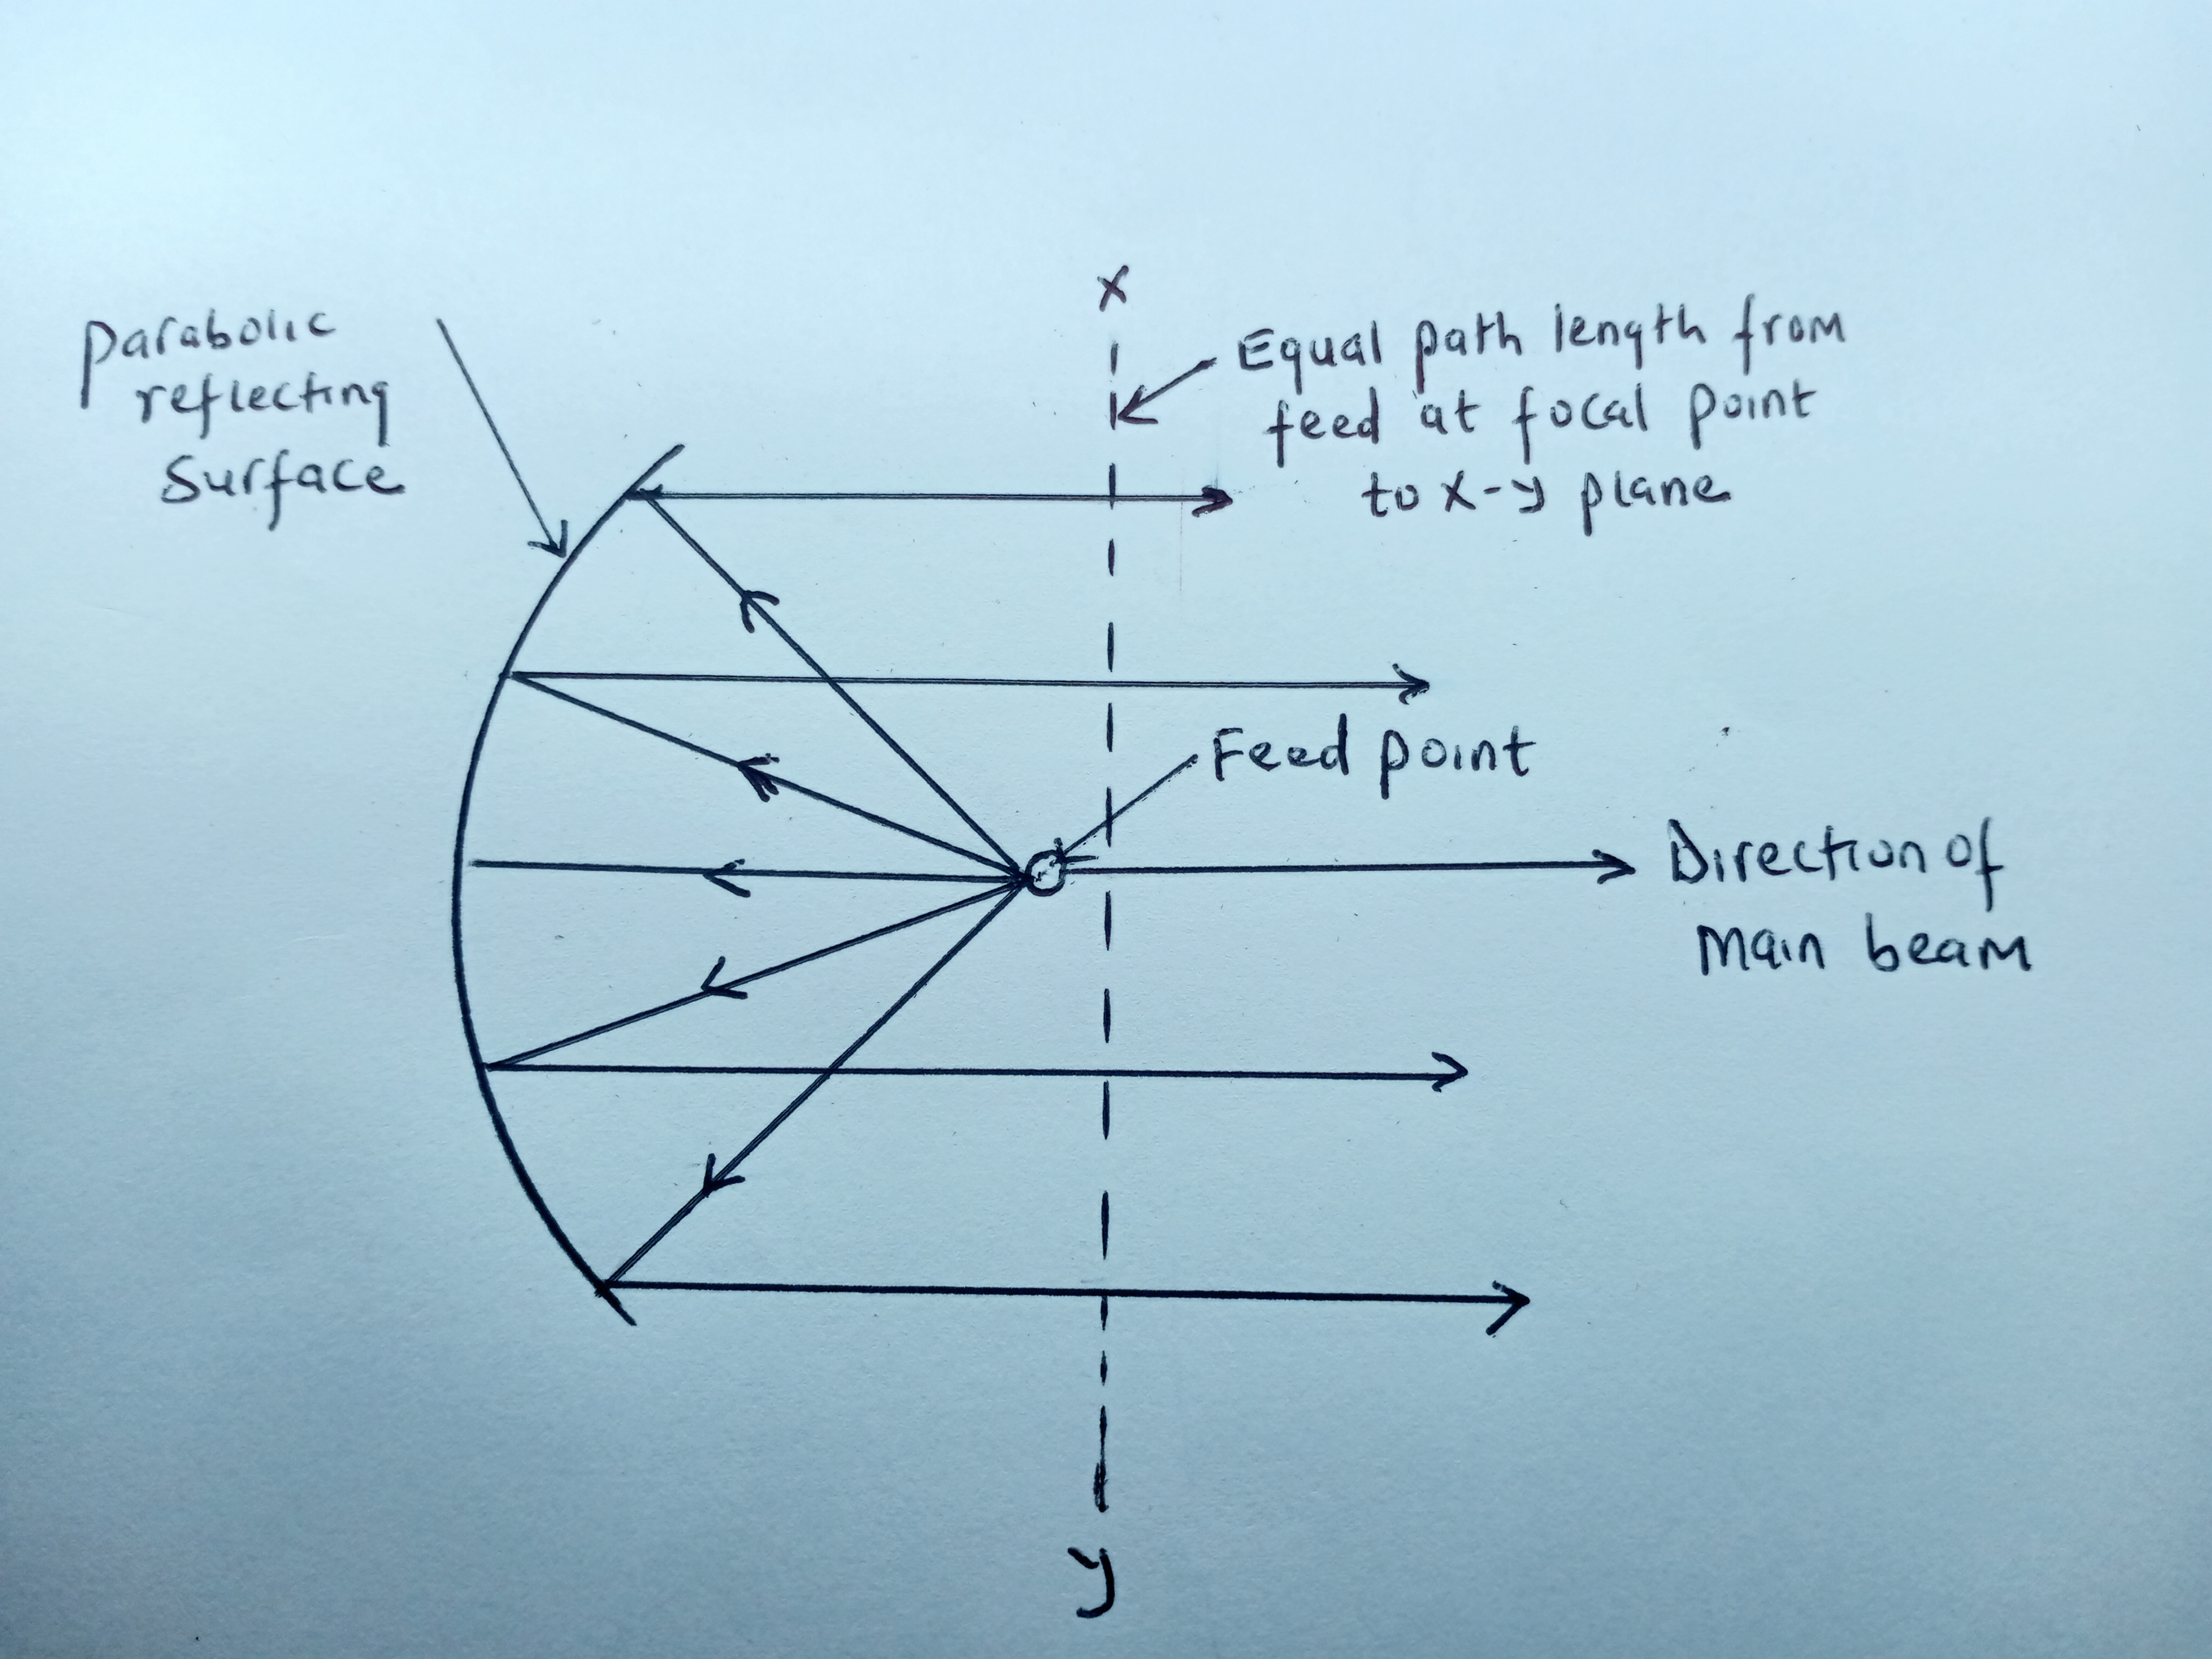 x
Parabolic
reflecting
Surface
Equal path length from
feed at focal point
to x-y plane
Feed point
Direction of
Main beam
y